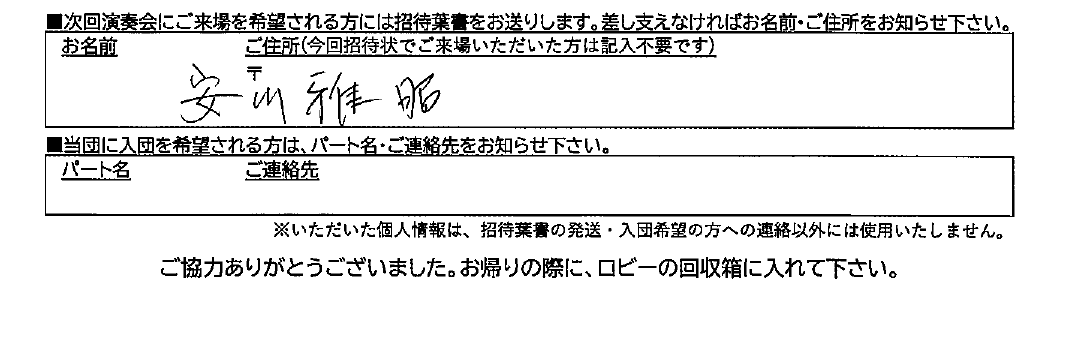 ■次回演奏会にご来場を希望される方には招待葉書をお送りします。差し支えなければお名前・ご住所をお知らせ下さい。
お名前 ご住所(今回招待状でご来場いただいた方は記入不要です)
〒
安川 雅昭
■当団に入団を希望される方は、パート名・ご連絡先をお知らせ下さい。
パート名 ご連絡先
※いただいた個人情報は、招待葉書の発送・入団希望の方への連絡以外には使用いたしません。
ご協力ありがとうございました。お帰りの際に、ロビーの回収箱に入れて下さい。